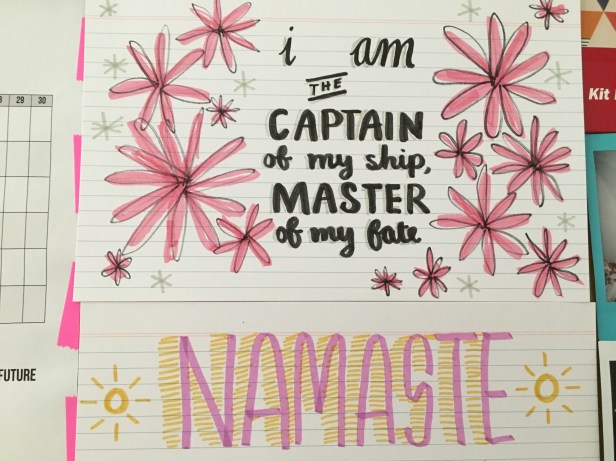 28 29 30
FUTURE
i am
THE
CAPTAIN
of my ship,
MASTER
of my fate
NAMASTE
Kit